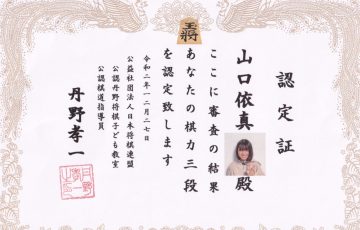 王将
認定証
山口依真殿
ここに審査の結果
あなたの棋力三段
を認定致します
令和二年一二月二七日
公益社団法人日本将棋連盟
公認丹野将棋子ども教室
公認棋道指導員
丹野孝一